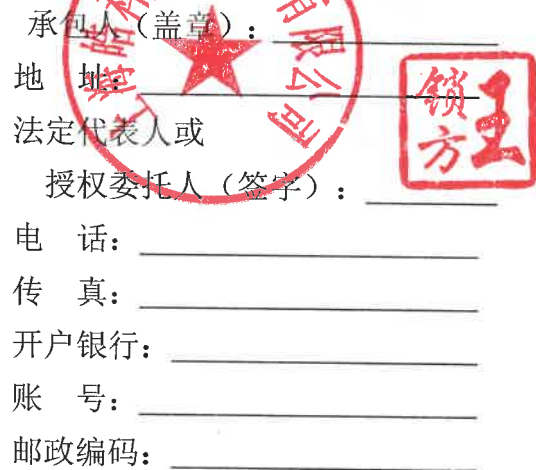 承包人（盖章）：
地 址：
法定代表人或
授权委托人（签字）：
电 话：
传 真：
开户银行：
账 号：
邮政编码：
有限公司
王
锁
方